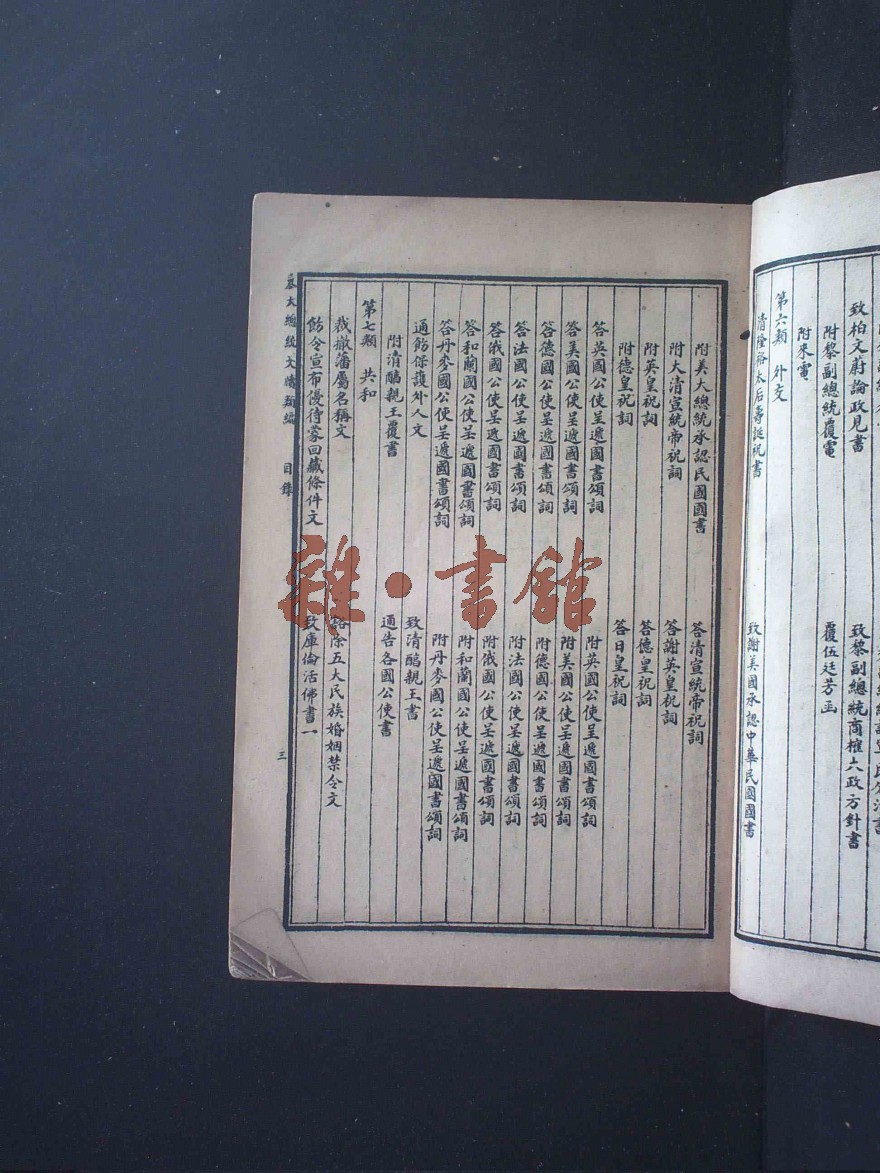 致柏文蔚論政見書
致黎副總統商榷大政方針書
附黎副總統覆電
覆伍廷芳函
附來電
第六類 外交
清隆裕太后壽誕祝書
致謝美國承認中華民國國書
附美大總統承認民國國書
答清宣統帝祝詞
附大清宣統帝祝詞
答謝英皇祝詞
附英皇祝詞
答德皇祝詞
附德皇祝詞
答日皇祝詞
答英國公使呈遞國書頌詞
附英國公使呈遞國書頌詞
答美國公使呈遞國書頌詞
附美國公使呈遞國書頌詞
答德國公使呈遞國書頌詞
附德國公使呈遞國書頌詞
答法國公使呈遞國書頌詞
附法國公使呈遞國書頌詞
答俄國公使呈遞國書頌詞
附俄國公使呈遞國書頌詞
答和蘭國公使呈遞國書頌詞
附和蘭國公使呈遞國書頌詞
答丹麥國公使呈遞國書頌詞
附丹麥國公使呈遞國書頌詞
通飭保護外人文
致清醇親王書
附清醇親王覆書
通告各國公使書
第七類 共和
裁撤藩屬名稱文
除五大民族婚姻禁令文
飭令宣布優待蒙回藏條件文
致庫倫活佛書一
袁大總統文牘類編 目錄 三
雜·書館